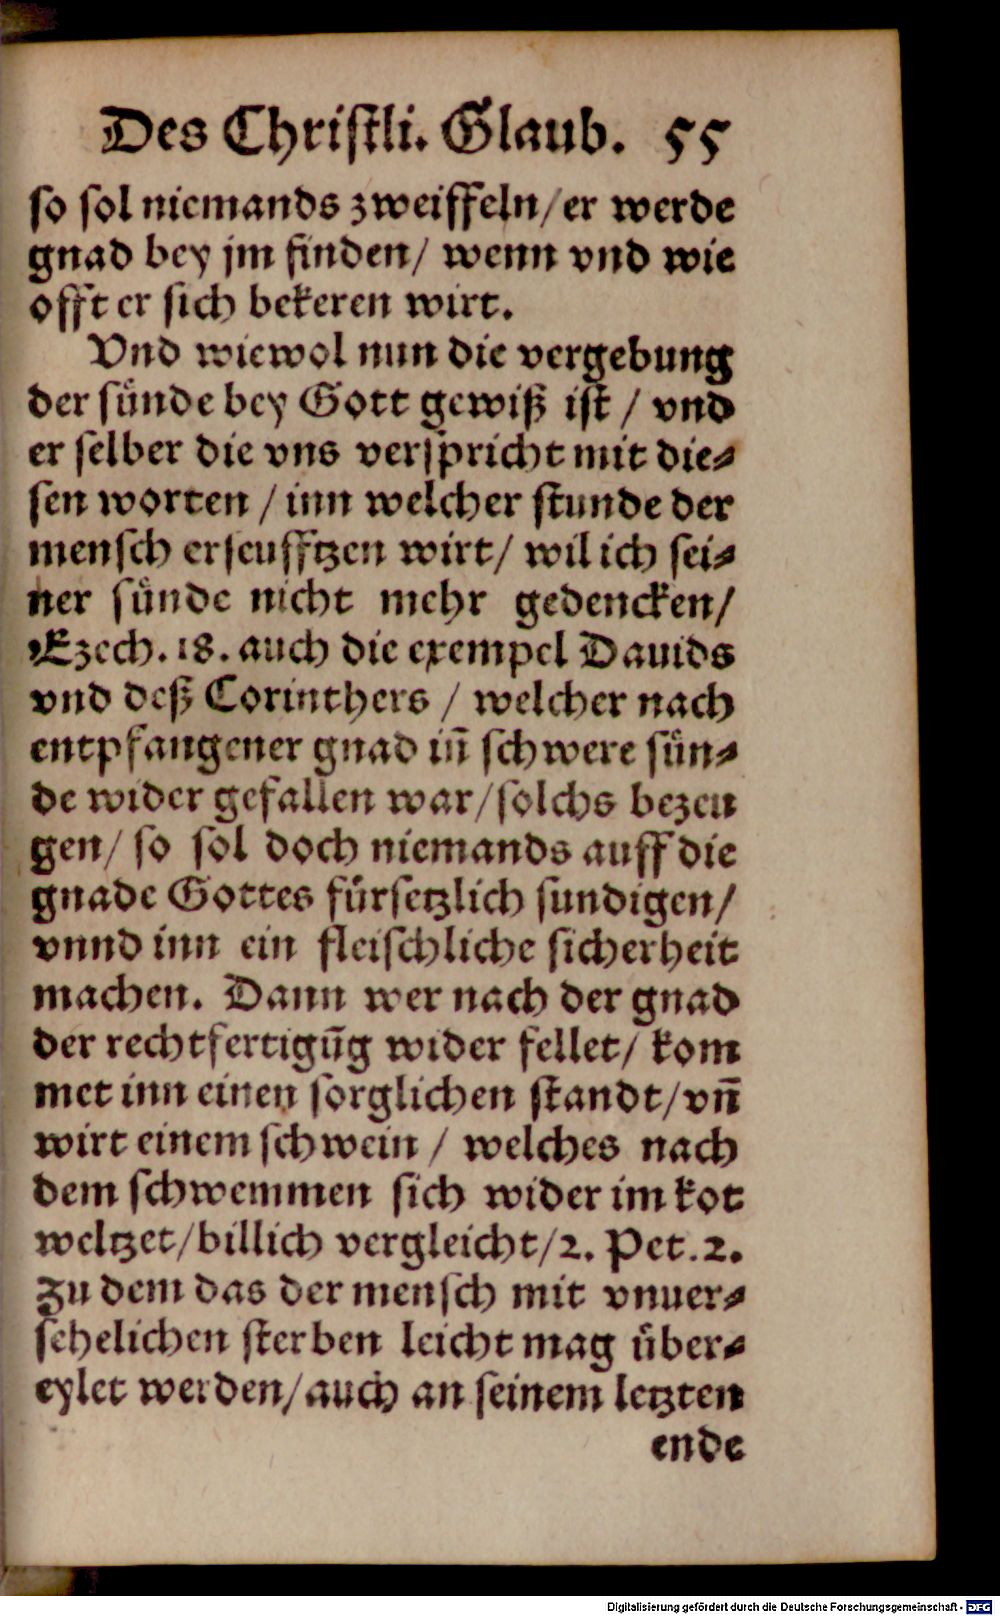 Des Christli. Glaub. 55
so sol niemands zweiffeln/er werde
gnad bey jm finden/ wenn vnd wie
offt er sich bekeren wirt.
Vnd wiewol nun die vergebung
der sünde bey Gott gewiß ist / vnd
er selber die vns verspricht mit die⸗
sen worten / inn welcher stunde der
mensch erseufftzen wirt/ wil ich sei⸗
ner sünde nicht mehr gedencken/
Ezech. 18. auch die exempel Dauids
vnd deß Corinthers / welcher nach
entpfangener gnad iñ schwere sün⸗
de wider gefallen war/solchs bezeu
gen/ so sol doch niemands auff die
gnade Gottes fürsetzlich sundigen/
vnnd inn ein fleischliche sicherheit
machen. Dann wer nach der gnad
der rechtfertigũg wider fellet/ kom
met inn einen sorglichen standt/vñ
wirt einem schwein / welches nach
dem schwemmen sich wider im kot
weltzet/billich vergleicht/2. Pet. 2.
Zu dem das der mensch mit vnuer⸗
sehelichen sterben leicht mag über⸗
eylet werden/auch an seinem letzten
ende
Digitalisierung gefördert durch die Deutsche Forschungsgemeinschaft - DFG